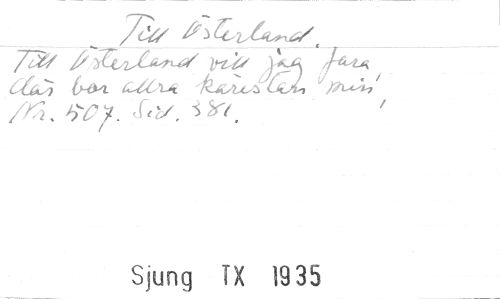 Till Österland.
Till Österland vill jag fara,
där bor allra kärestan min,
Nr. 507. Sid. 381.
Sjung TX 1935